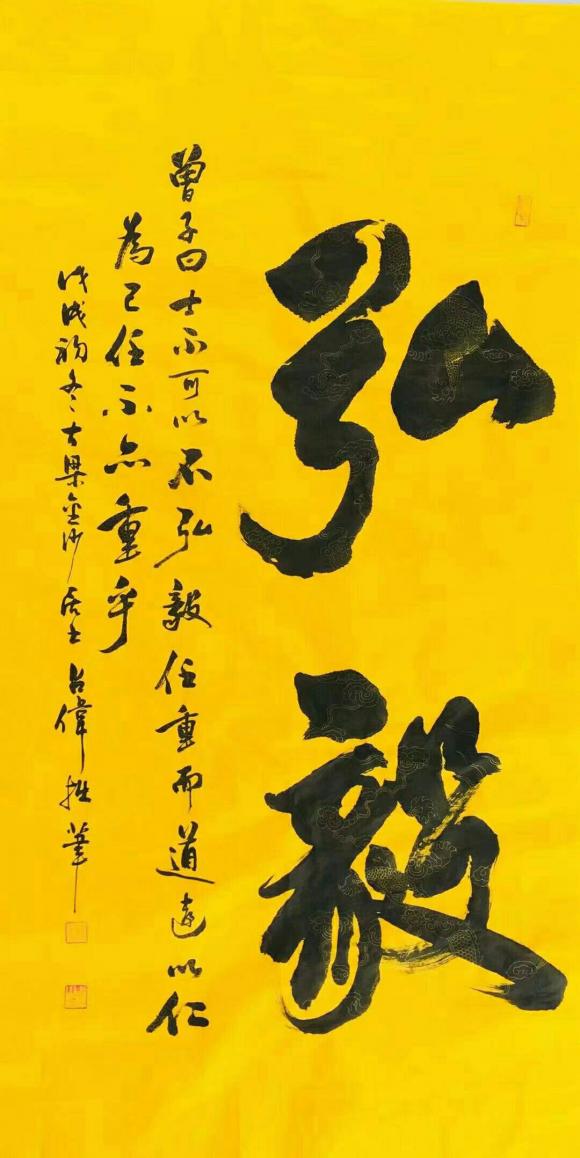 弘毅
曾子曰士不可以不弘毅任重而道遠以仁
為己任不亦重乎
戊戌初冬古梁金沙居士吕偉拙筆